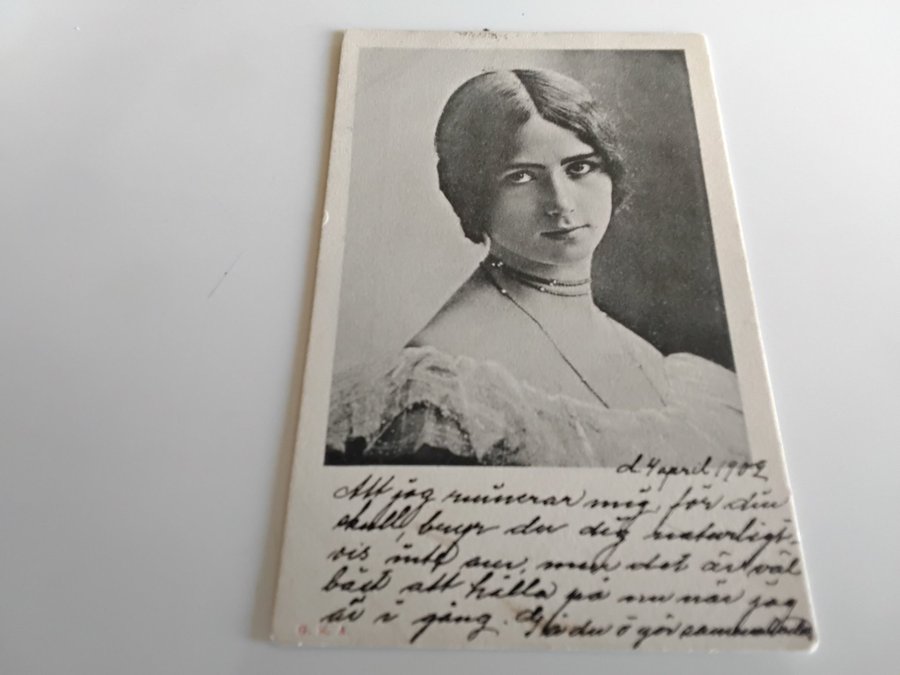 d. 4 april 1902
Att jag ruinerar mig för din
skull, bryr du dig naturligt-
vis inte om, men det är väl
bäst att hålla på nu när jag
är i gång. Gå du o gör